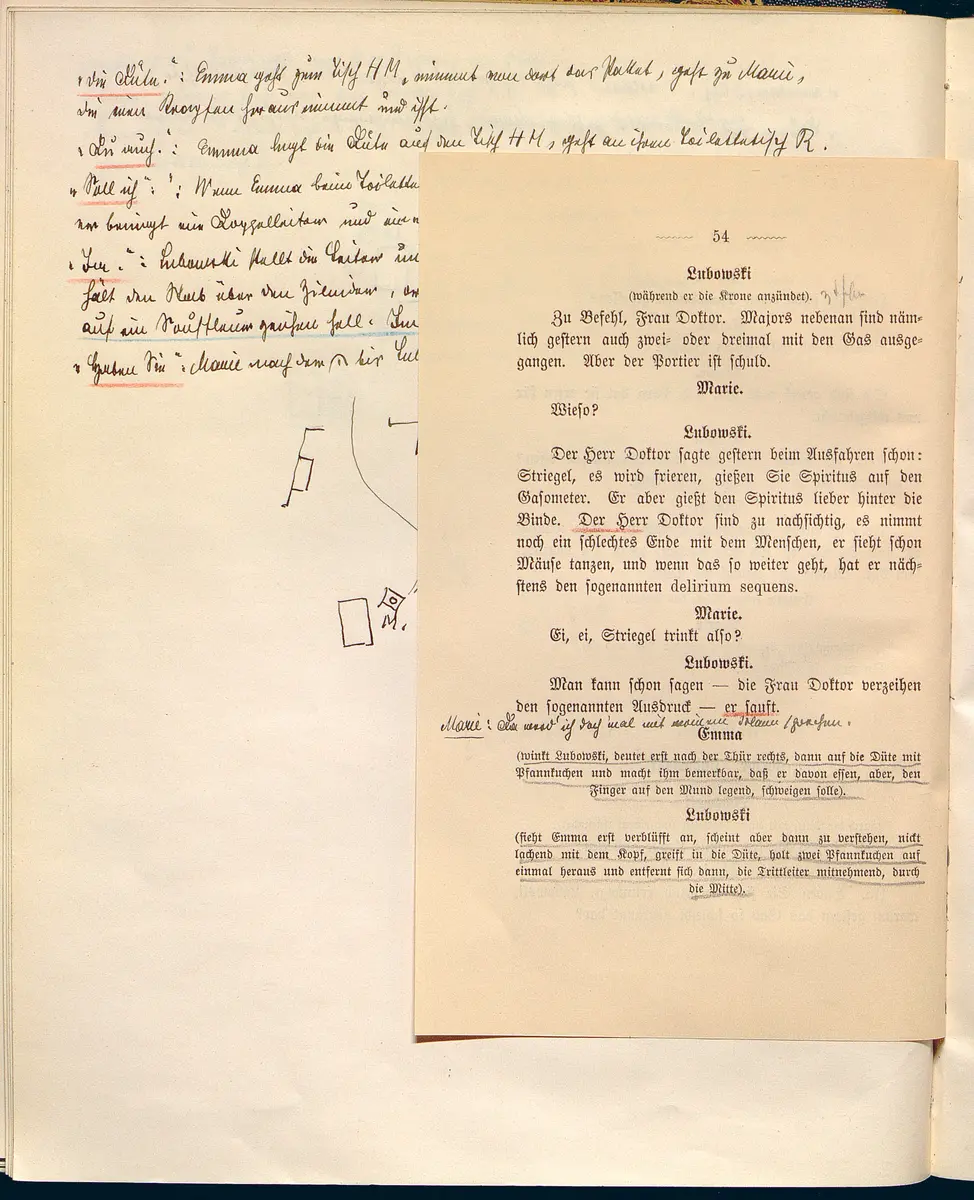 „die Düte.“: Emma geht zum Tisch H M, nimmt von dort das Paket, geht zu Marie,
die einen Krapfen herausnimmt und isst.
„Du auch.“: Emma legt die Düte auf den Tisch H M, geht an ihren Toilettetisch R.
„Soll ich“: Wenn Emma beim Toilette
er bringt eine Doppelleiter und eine
Lubowski stellt die Leiter
hält den Stab über den Zilinder,
auf ein
„Haben Sie“: Marie nach dem bis
M.
54
Lubowski
(während er die Krone anzündet).
Zu Befehl, Frau Doktor. Majors nebenan sind näm-
lich gestern auch zwei- oder dreimal mit den Gas ausge-
gangen. Aber der Portier ist schuld.
Marie.
Wieso?
Lubowski.
Der Herr Doktor sagte gestern beim Ausfahren schon:
Striegel, es wird frieren, gießen Sie Spiritus auf den
Gasometer. Er aber gießt den Spiritus lieber hinter die
Binde. Der Herr Doktor sind zu nachsichtig, es nimmt
noch ein schlechtes Ende mit dem Menschen, er sieht schon
Mäuse tanzen, und wenn das so weiter geht, hat er näch-
stens den sogenannten delirium sequens.
Marie.
Ei, ei, Striegel trinkt also?
Lubowski.
Man kann schon sagen — die Frau Doktor verzeihen
den sogenannten Ausdruck — er sauft.
Marie: Da werd' ich doch mal mit meinem Mann sprechen.
Emma
(winkt Lubowski, deutet erst nach der Thür rechts, dann auf die Düte mit
Pfannkuchen und macht ihm bemerkbar, daß er davon essen, aber, den
Finger auf den Mund legend, schweigen solle).
Lubowski
(sieht Emma erst verblüfft an, scheint aber dann zu verstehen, nickt
lachend mit dem Kopf, greift in die Düte, holt zwei Pfannkuchen auf
einmal heraus und entfernt sich dann, die Trittleiter mitnehmend, durch
die Mitte).